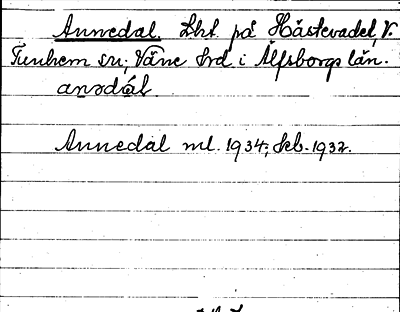 Annedal. Lht. på Hästevadet, V.
Tunhem sn, Väne hrd i Älfsborgs län.
anədál.
Annedal ml. 1934; Skb. 1932.